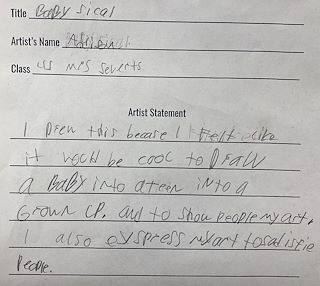 Title BaBy sical
Artist's Name
Class Mrs Severts
Artist Statement
I Drew this becase I Felt like
it woud be cool to DraW
a BaBy into a teen into a
Grown UP. and to show people my art.
I also exspress my art to satisfie
People.